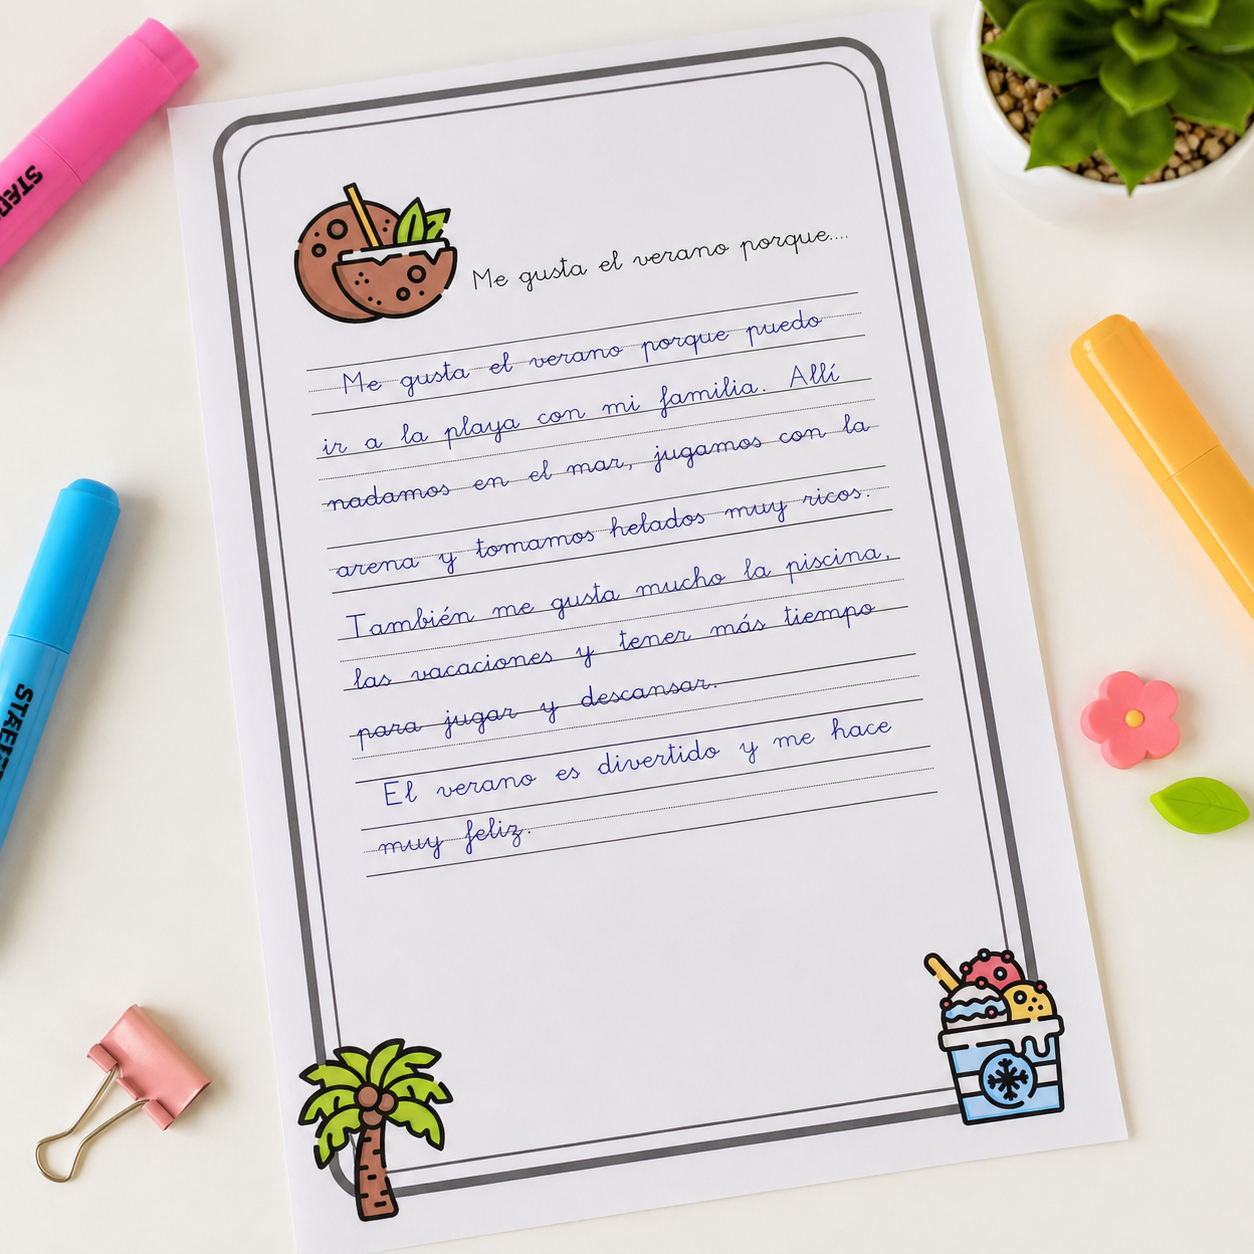 Me gusta el verano porque....
Me gusta el verano porque puedo
ir a la playa con mi familia. Allí
nadamos en el mar, jugamos con la
arena y tomamos helados muy ricos.
También me gusta mucho la piscina,
las vacaciones y tener más tiempo
para jugar y descansar.
El verano es divertido y me hace
muy feliz.